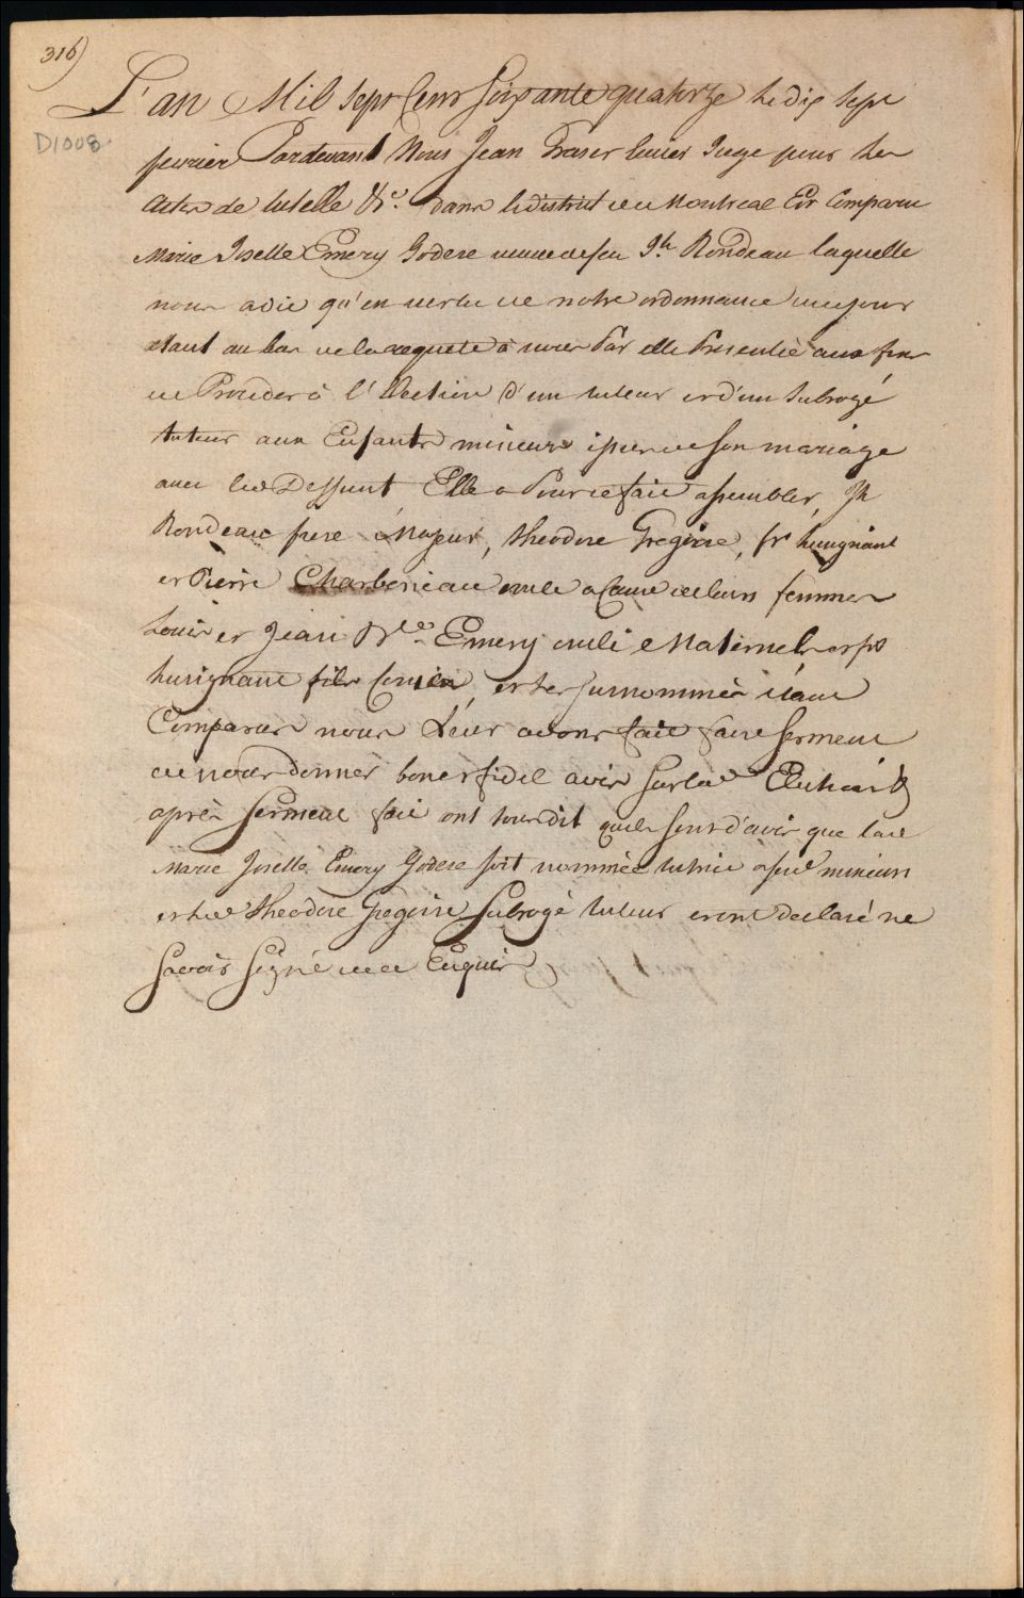 316)
L'an Mil Sept Cent Soixante quatorze Le dix Sept
D1008
fevrier Pardevant Nous Jean Fraser Ecuier Juge pour Les
Actes de tutelle &c. dans le district de Montreal Est Comparu
Marie Joselle Emery Godere veuve de feu Jh Rondeau laquelle
nous a dit qu'en vertu de notre ordonnance de ce jour
etant au bas de la requete à nous Par elle Presentée aux fins
de Proceder à l'Election d'un tuteur et d'un Subrogé
tuteur aux Enfants mineurs issus de Son mariage
avec led Deffunt Elle a Pour ce fait assembler, Jh
Rondeau frere Majeur, theodore Gregoire, fs
et Pierre Charboneau oncle a Cause de leurs femmes
Louis et Jean Bte Emery oncle Maternels et fs
fils Cousin, et les surnommés étant
Comparus nous Leur avons fait faire Serment
de nous donner bon et fidel avis Sur la d Election &
après Serment fait ont tous dit quils sont d'avis que lad
Marie Joselle Emery Godere soit nommée tutrice a sesd mineurs
et led theodore Gregoire Subrogé tuteur et ont declaré ne
Savoir Signé de ce Enquis